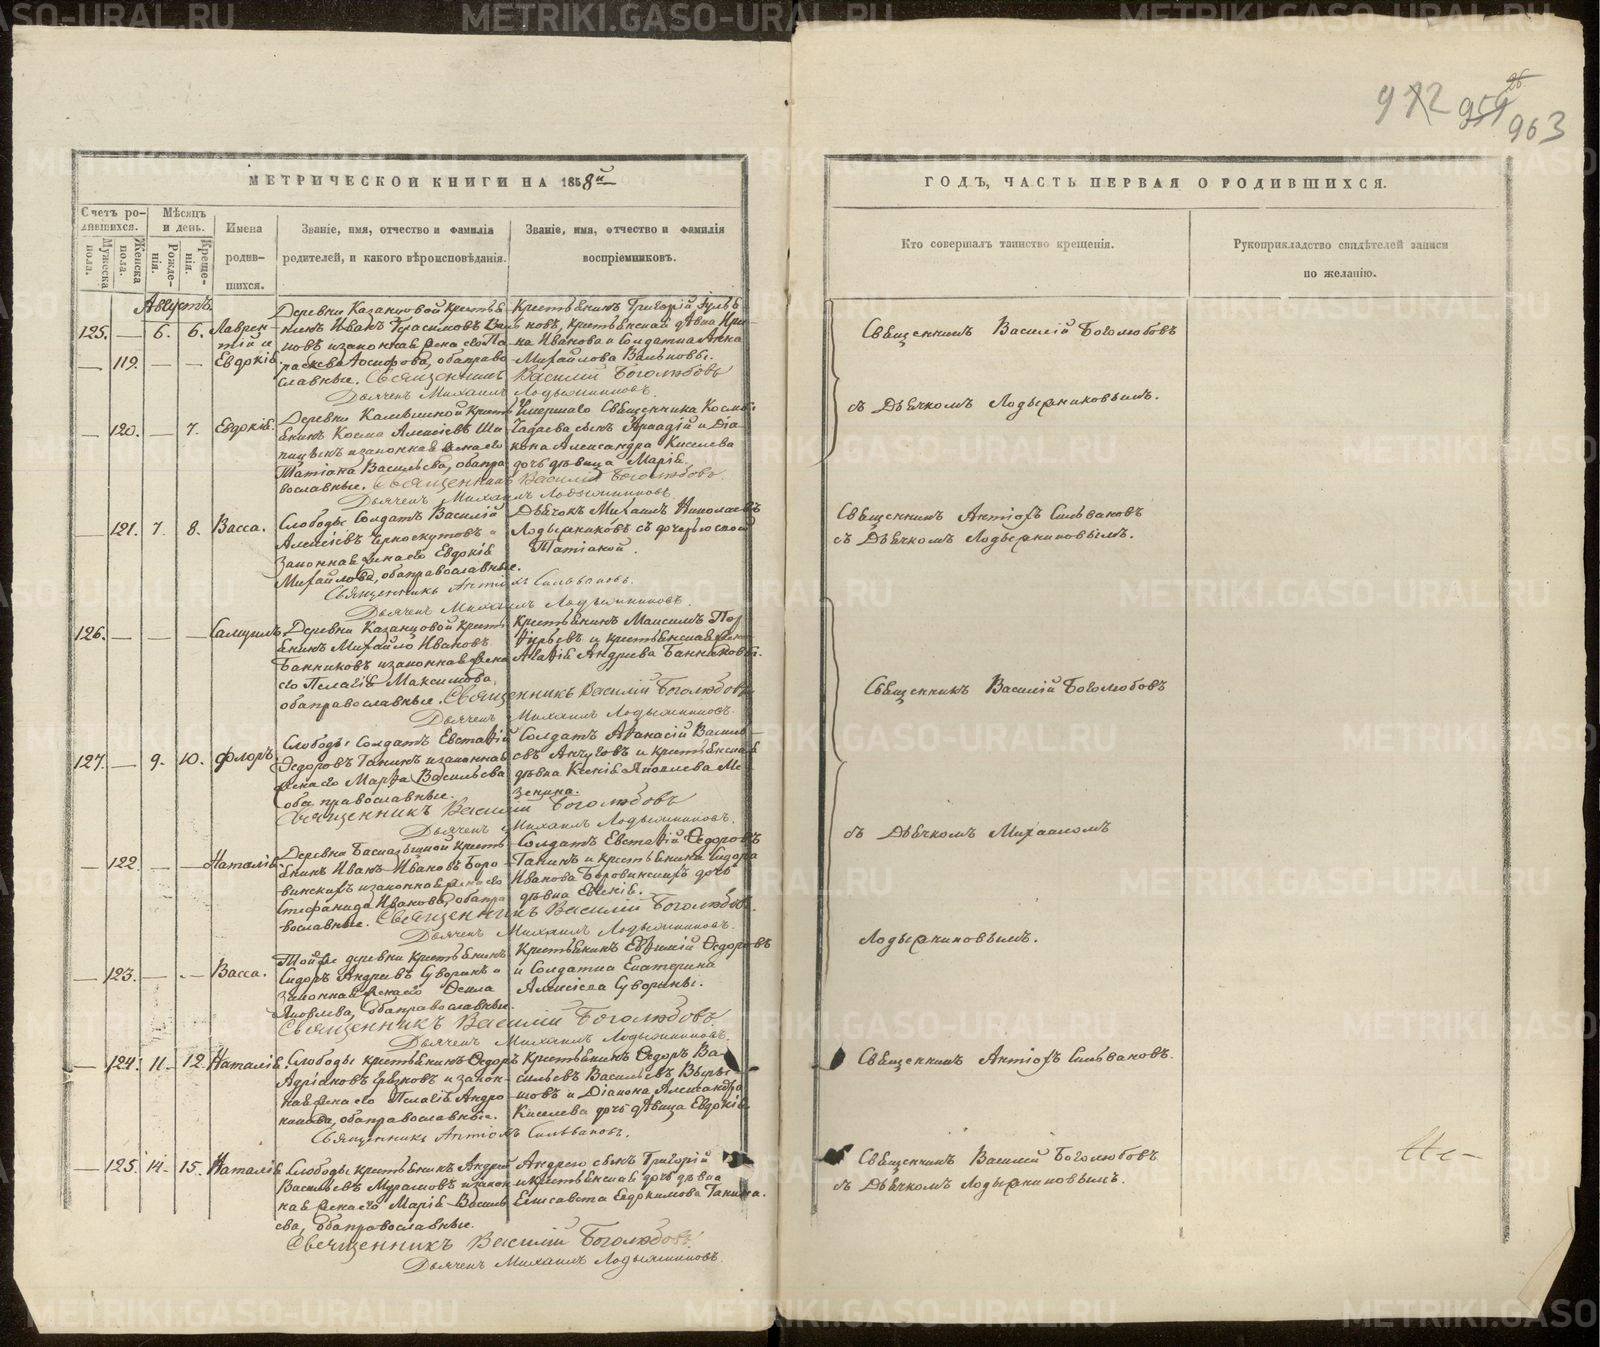 972 959 26 963
МЕТРИЧЕСКОЙ КНИГИ НА 1858й
ГОДЪ, ЧАСТЬ ПЕРВАЯ О РОДИВШИХСЯ.
Счетъ ро-
дившихся.
Мужеска
пола.
Женска
пола.
Мѣсяцъ
и день.
Рожде-
нія.
Креще-
нія.
Имена
родив-
шихся.
Званіе, имя, отчество и фамилія
родителей, и какого вѣроисповѣданія.
Званіе, имя, отчество и фамилія
воспріемниковъ.
Кто совершалъ таинство крещенія.
Рукоприкладство свидѣтелей записи
по желанію.
Августъ.
125. — 6. 6. Лаврен-
тій и
— 119. — — Евдокія.
Деревни Казанцовой крестья-
нинъ Иванъ Герасимовъ
и законная жена его Па-
раскева Іосифова, оба право-
славные. Священникъ Василій Боголюбовъ
Дьячекъ Михаилъ Лодыжниковъ.
Крестьянинъ Григорій
новъ, крестьянская дѣвка Ири-
на Иванова и солдатка Анна
Михайлова
Священникъ Василій Боголюбовъ
съ Дьячкомъ Лодыжниковымъ.
— 120. — 7. Евдокія.
Деревни крестья-
нинъ Косма Алексѣевъ
и законная жена его
Татіана Васильева, оба пра-
вославные. Священникъ Василій Боголюбовъ.
Дьячекъ Михаилъ Лодыжниковъ.
Умершаго Священника Космы
сынъ Аркадій и Діа-
кона Александра Киселева
дочь дѣвица Марія.
— 121. 7. 8. Васса.
Слободы Солдатъ Василій
Алексѣевъ Черноскутовъ и
законная жена его Евдокія
Михайлова, оба православные.
Священникъ Антіохъ Сильвановъ.
Дьячекъ Михаилъ Лодыжниковъ.
Дьячокъ Михаилъ Николаевъ
Лодыжниковъ съ дочерью своей
Татіаной.
Священникъ Антіохъ Сильвановъ
съ Дьячкомъ Лодыжниковымъ.
126. — — — Самуилъ.
Деревни Казанцовой крестья-
нинъ Михайло Ивановъ
Банниковъ и законная жена
его Пелагія Максимова,
оба православные. Священникъ Василій Боголюбовъ
Дьячекъ Михаилъ Лодыжниковъ.
Крестьянинъ Максимъ
и крестьянская жена
Агафія Андреева Банниковы.
Священникъ Василій Боголюбовъ
127. — 9. 10. Флоръ.
Слободы Солдатъ Евстафій
Ѳедоровъ Панинъ и законная
жена его Марѳа Васильева
оба православные.
Священникъ Василій Боголюбовъ
Дьячекъ Михаилъ Лодыжниковъ.
Солдатъ Аѳанасій Василь-
евъ Анчуговъ и крестьянская
дѣвка Ксенія Яковлева Ме-
зенина.
съ Дьячкомъ Михаиломъ
— 122. — — Наталія.
Деревни крестья-
нинъ Иванъ Ивановъ Боро-
винскихъ и законная жена его
Степанида Иванова, оба пра-
вославные. Священникъ Василій Боголюбовъ.
Дьячекъ Михаилъ Лодыжниковъ.
Солдатъ Евстафій Ѳедоровъ
Панинъ и крестьянина Сидора
Иванова Боровинскихъ дочь
дѣвка Евгенія.
Лодыжниковымъ.
— 123. — — Васса.
Той же деревни крестьянинъ
Сидоръ Андреевъ Суворинъ и
законная жена его Ѳекла
Яковлева, оба православные.
Священникъ Василій Боголюбовъ.
Дьячекъ Михаилъ Лодыжниковъ.
Крестьянинъ Евфимій Ѳедоровъ
и Солдатка Екатерина
Алексѣева Суворины.
— 124. 11. 12. Наталія.
Слободы крестьянинъ Ѳедоръ
Адріановъ и закон-
ная жена его Пелагія Андро-
никова, оба православные.
Священникъ Антіохъ Сильвановъ.
Крестьянинъ Ѳедоръ Ва-
сильевъ Васильевъ
и Діакона Александра
Киселева дочь дѣвица Евдокія.
Священникъ Антіохъ Сильвановъ.
— 125. 14. 15. Наталія.
Слободы крестьянинъ Андрей
Васильевъ Мурашовъ и закон-
ная жена его Марія Василь-
ева, оба православные.
Священникъ Василій Боголюбовъ.
Дьячекъ Михаилъ Лодыжниковъ.
Андреевъ сынъ Григорій
и крестьянская дочь дѣвка
Елисавета Евдокимова Панина.
Священникъ Василій Боголюбовъ
съ Дьячкомъ Лодыжниковымъ.
METRIKI.GASO-URAL.RU